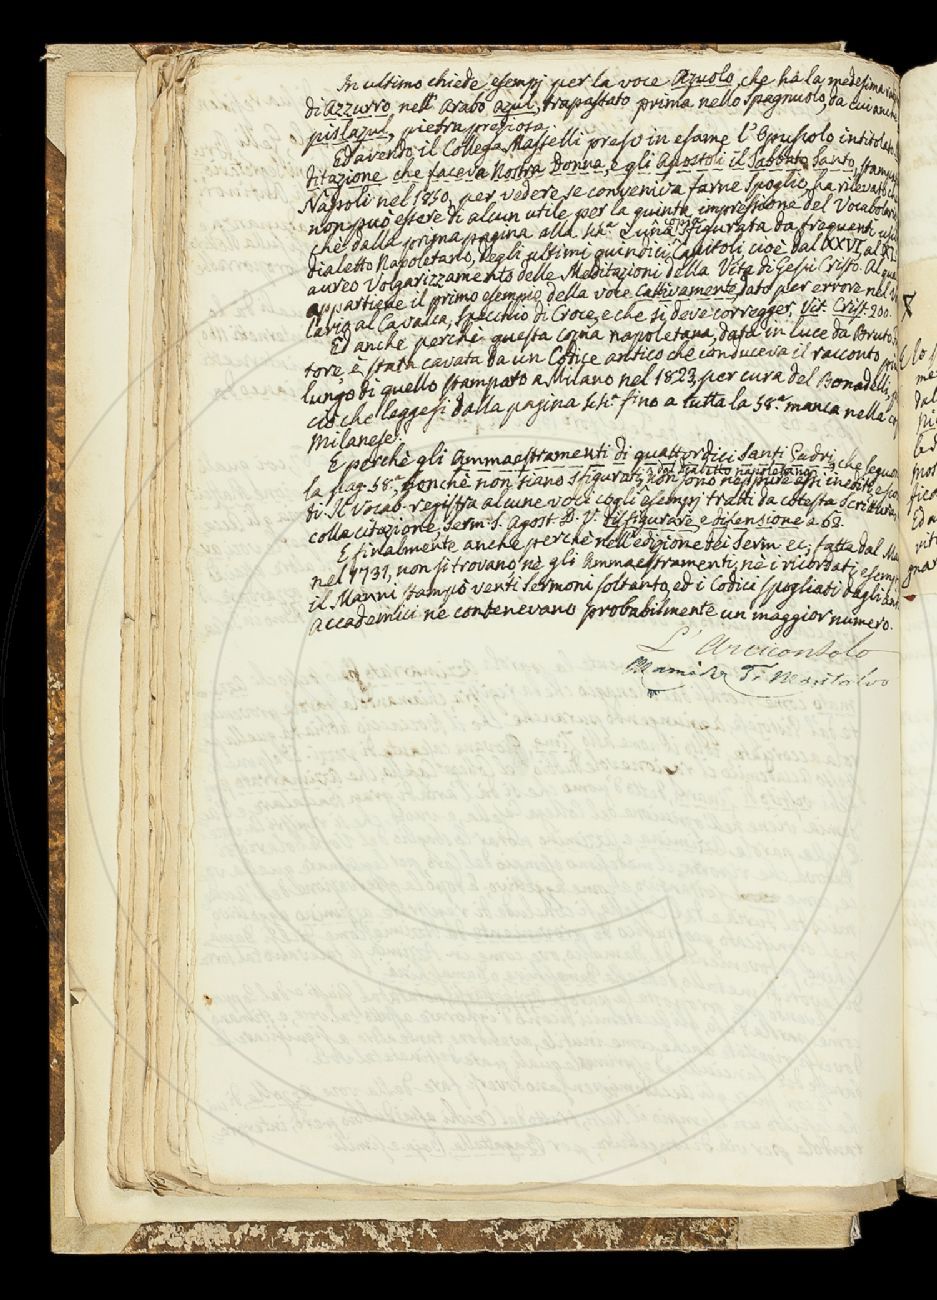 In ultimo chiede esempj per la voce Azuolo, che ha la medesima
di Azzurro nell' Arabo azul, trapassato prima nello Spagnuolo, da cui anche
pislazul, pietra preziosa.
Ed avendo il Collega Masselli preso in esame l'Opuscolo intitolato
ditazione che faceva Nostra Donna e gli Apostoli il Sabbato Santo, stampato
Napoli nel 1860, per vedere se conveniva farne spoglio, ha rilevato
non può essere di alcun utile per la quinta impressione del Vocabolario
chè dalla prima pagina alla 44.a è una copia sfigurata da frequenti
dialetto Napoletano, degli ultimi quindici Capitoli cioè dal LXXVI al
aureo Volgarizzamento delle Meditazioni della Vita di Gesù Cristo. Al qua
appartiene il primo esempio della voce Cattivamente, dato per errore nel
lario al Cavalca, Specchio di Croce, e che si deve corregger, Vit. Crist. 200.
Ed anche perchè questa copia napoletana, data in luce da Bruto
tore, è stata cavata da un Codice antico che conduceva il racconto più
lungo di quello stampato a Milano nel 1823 per cura del Bonadelli,
ciò che leggesi dalla pagina 44.a fino a tutta la 58.a manca nella
Milanese.
E perchè gli Ammaestramenti di quattordici Santi Padri, che seguono
la pag. 58.a, nonchè non siano sfigurati dal dialetto napoletano, non sono neppure essi inediti,
di. Il Vocab. registra alcune voci cogli esempj tratti da cotesta Scrittura
colla citazione, Serm. S. Agost. D. V. Disfigurare e difensione a 62.
E finalmente anche perchè nell'edizione dei Serm. ec; fatta dal
nel 1731, non si trovano nè gli Ammaestramenti, nè i ricordati esempj
il Manni stampò venti Sermoni soltanto, ed i Codici spogliati dagli
accademici ne contenevano probabilmente un maggior numero.
L'Arciconsolo